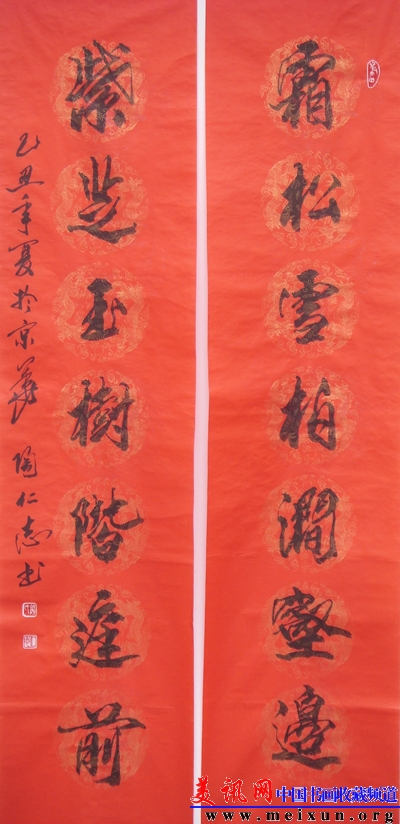 霜松雪柏澗壑邊
紫芝玉樹階庭前
乙丑年夏於京華 陶仁志書
美讯网 中国书画收藏频道
www.meixun.org